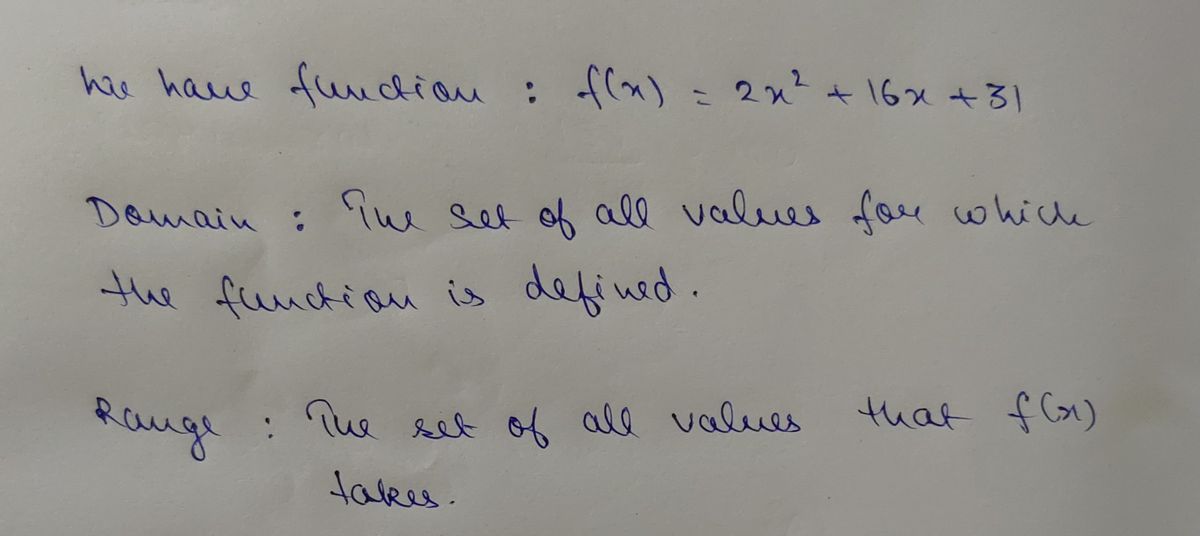 We have function : f(x) = 2x² + 16x + 31
Domain : The set of all values for which
the function is defined.
Range : The set of all values that f(x)
takes.